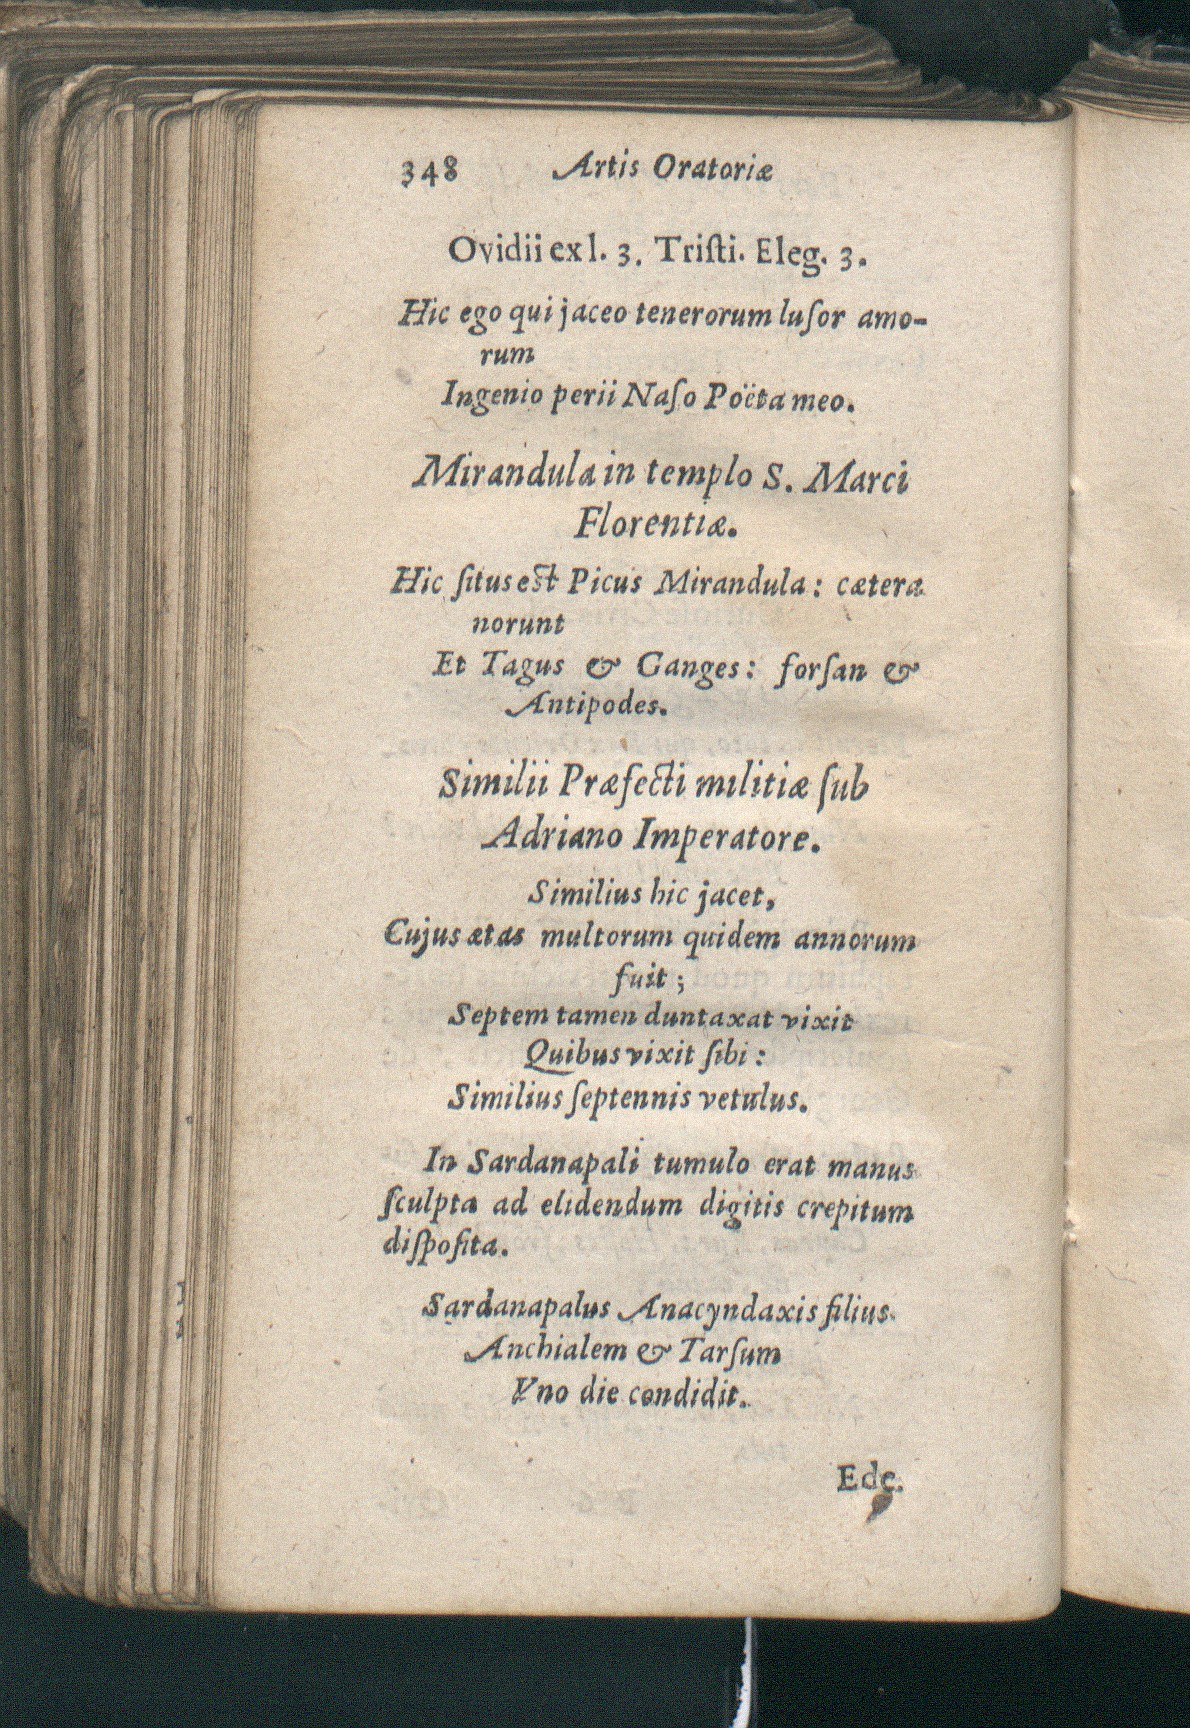 348 Artis Oratoriæ
Ovidii ex l. 3. Triſti. Eleg. 3.
Hic ego qui jaceo tenerorum luſor amo-
rum
Ingenio perii Naſo Poëta meo.
Mirandula in templo S. Marci
Florentiæ.
Hic ſitus eſt Picus Mirandula: cætera
norunt
Et Tagus & Ganges: forſan &
Antipodes.
Similii Præfecti militiæ ſub
Adriano Imperatore.
Similius hic jacet,
Cujus ætas multorum quidem annorum
fuit;
Septem tamen duntaxat vixit
Quibus vixit ſibi:
Similius ſeptennis vetulus.
In Sardanapali tumulo erat manus
ſculpta ad elidendum digitis crepitum
diſpoſita.
Sardanapalus Anacyndaxis filius
Anchialem & Tarſum
Vno die condidit.
Ede.